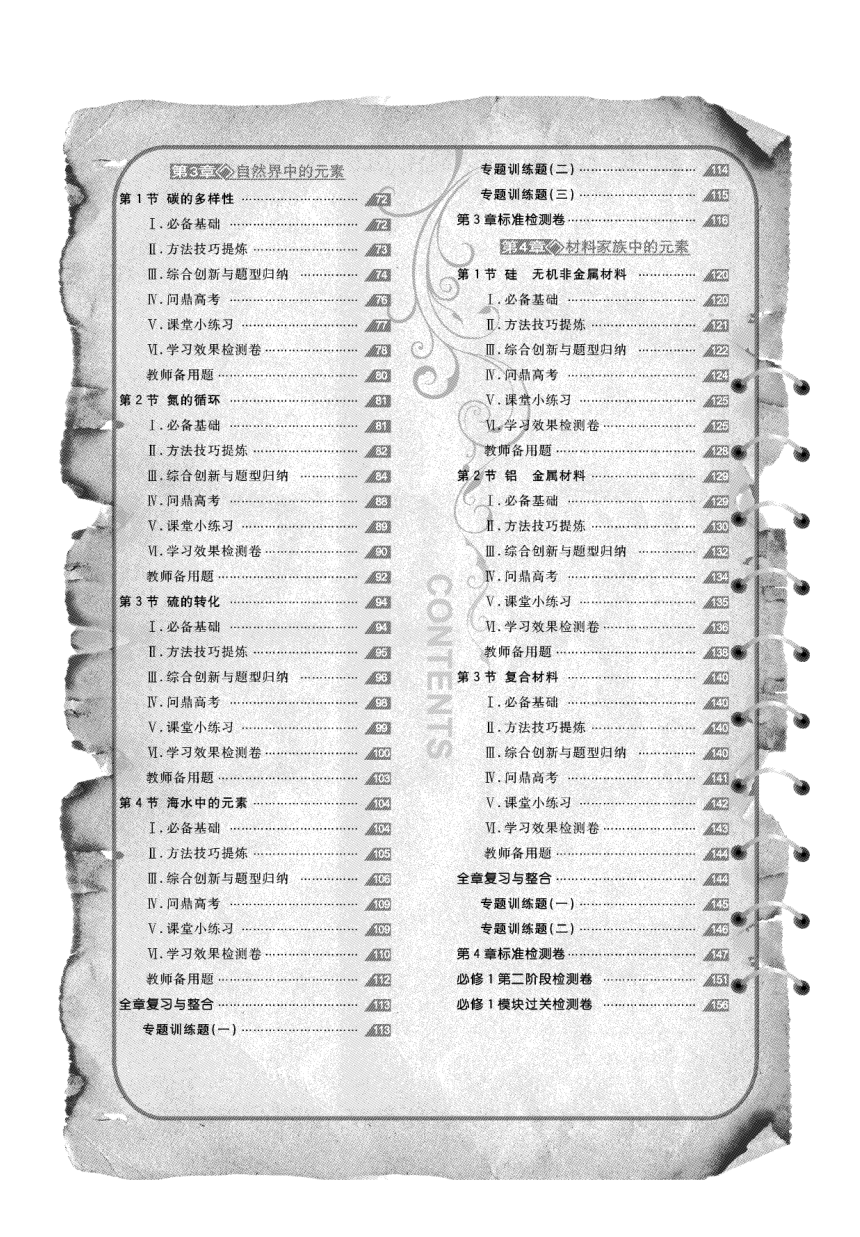 第3章 自然界中的元素
第1节 碳的多样性 72
Ⅰ.必备基础 72
Ⅱ.方法技巧提炼 73
Ⅲ.综合创新与题型归纳 74
Ⅳ.问鼎高考 76
Ⅴ.课堂小练习 77
Ⅵ.学习效果检测卷 78
教师备用题 80
第2节 氮的循环 81
Ⅰ.必备基础 81
Ⅱ.方法技巧提炼 82
Ⅲ.综合创新与题型归纳 84
Ⅳ.问鼎高考 88
Ⅴ.课堂小练习 89
Ⅵ.学习效果检测卷 90
教师备用题 92
第3节 硫的转化 94
Ⅰ.必备基础 94
Ⅱ.方法技巧提炼 95
Ⅲ.综合创新与题型归纳 96
Ⅳ.问鼎高考 98
Ⅴ.课堂小练习 99
Ⅵ.学习效果检测卷 100
教师备用题 103
第4节 海水中的元素 104
Ⅰ.必备基础 104
Ⅱ.方法技巧提炼 105
Ⅲ.综合创新与题型归纳 106
Ⅳ.问鼎高考 109
Ⅴ.课堂小练习 109
Ⅵ.学习效果检测卷 110
教师备用题 112
全章复习与整合 113
专题训练题(一) 113
CONTENTS
专题训练题(二) 114
专题训练题(三) 115
第3章标准检测卷 116
第4章 材料家族中的元素
第1节 硅 无机非金属材料 120
Ⅰ.必备基础 120
Ⅱ.方法技巧提炼 121
Ⅲ.综合创新与题型归纳 122
Ⅳ.问鼎高考 124
Ⅴ.课堂小练习 125
Ⅵ.学习效果检测卷 125
教师备用题 128
第2节 铝 金属材料 129
Ⅰ.必备基础 129
Ⅱ.方法技巧提炼 130
Ⅲ.综合创新与题型归纳 132
Ⅳ.问鼎高考 134
Ⅴ.课堂小练习 135
Ⅵ.学习效果检测卷 136
教师备用题 138
第3节 复合材料 140
Ⅰ.必备基础 140
Ⅱ.方法技巧提炼 140
Ⅲ.综合创新与题型归纳 140
Ⅳ.问鼎高考 141
Ⅴ.课堂小练习 142
Ⅵ.学习效果检测卷 143
教师备用题 144
全章复习与整合 144
专题训练题(一) 145
专题训练题(二) 146
第4章标准检测卷 147
必修1第二阶段检测卷 151
必修1模块过关检测卷 156